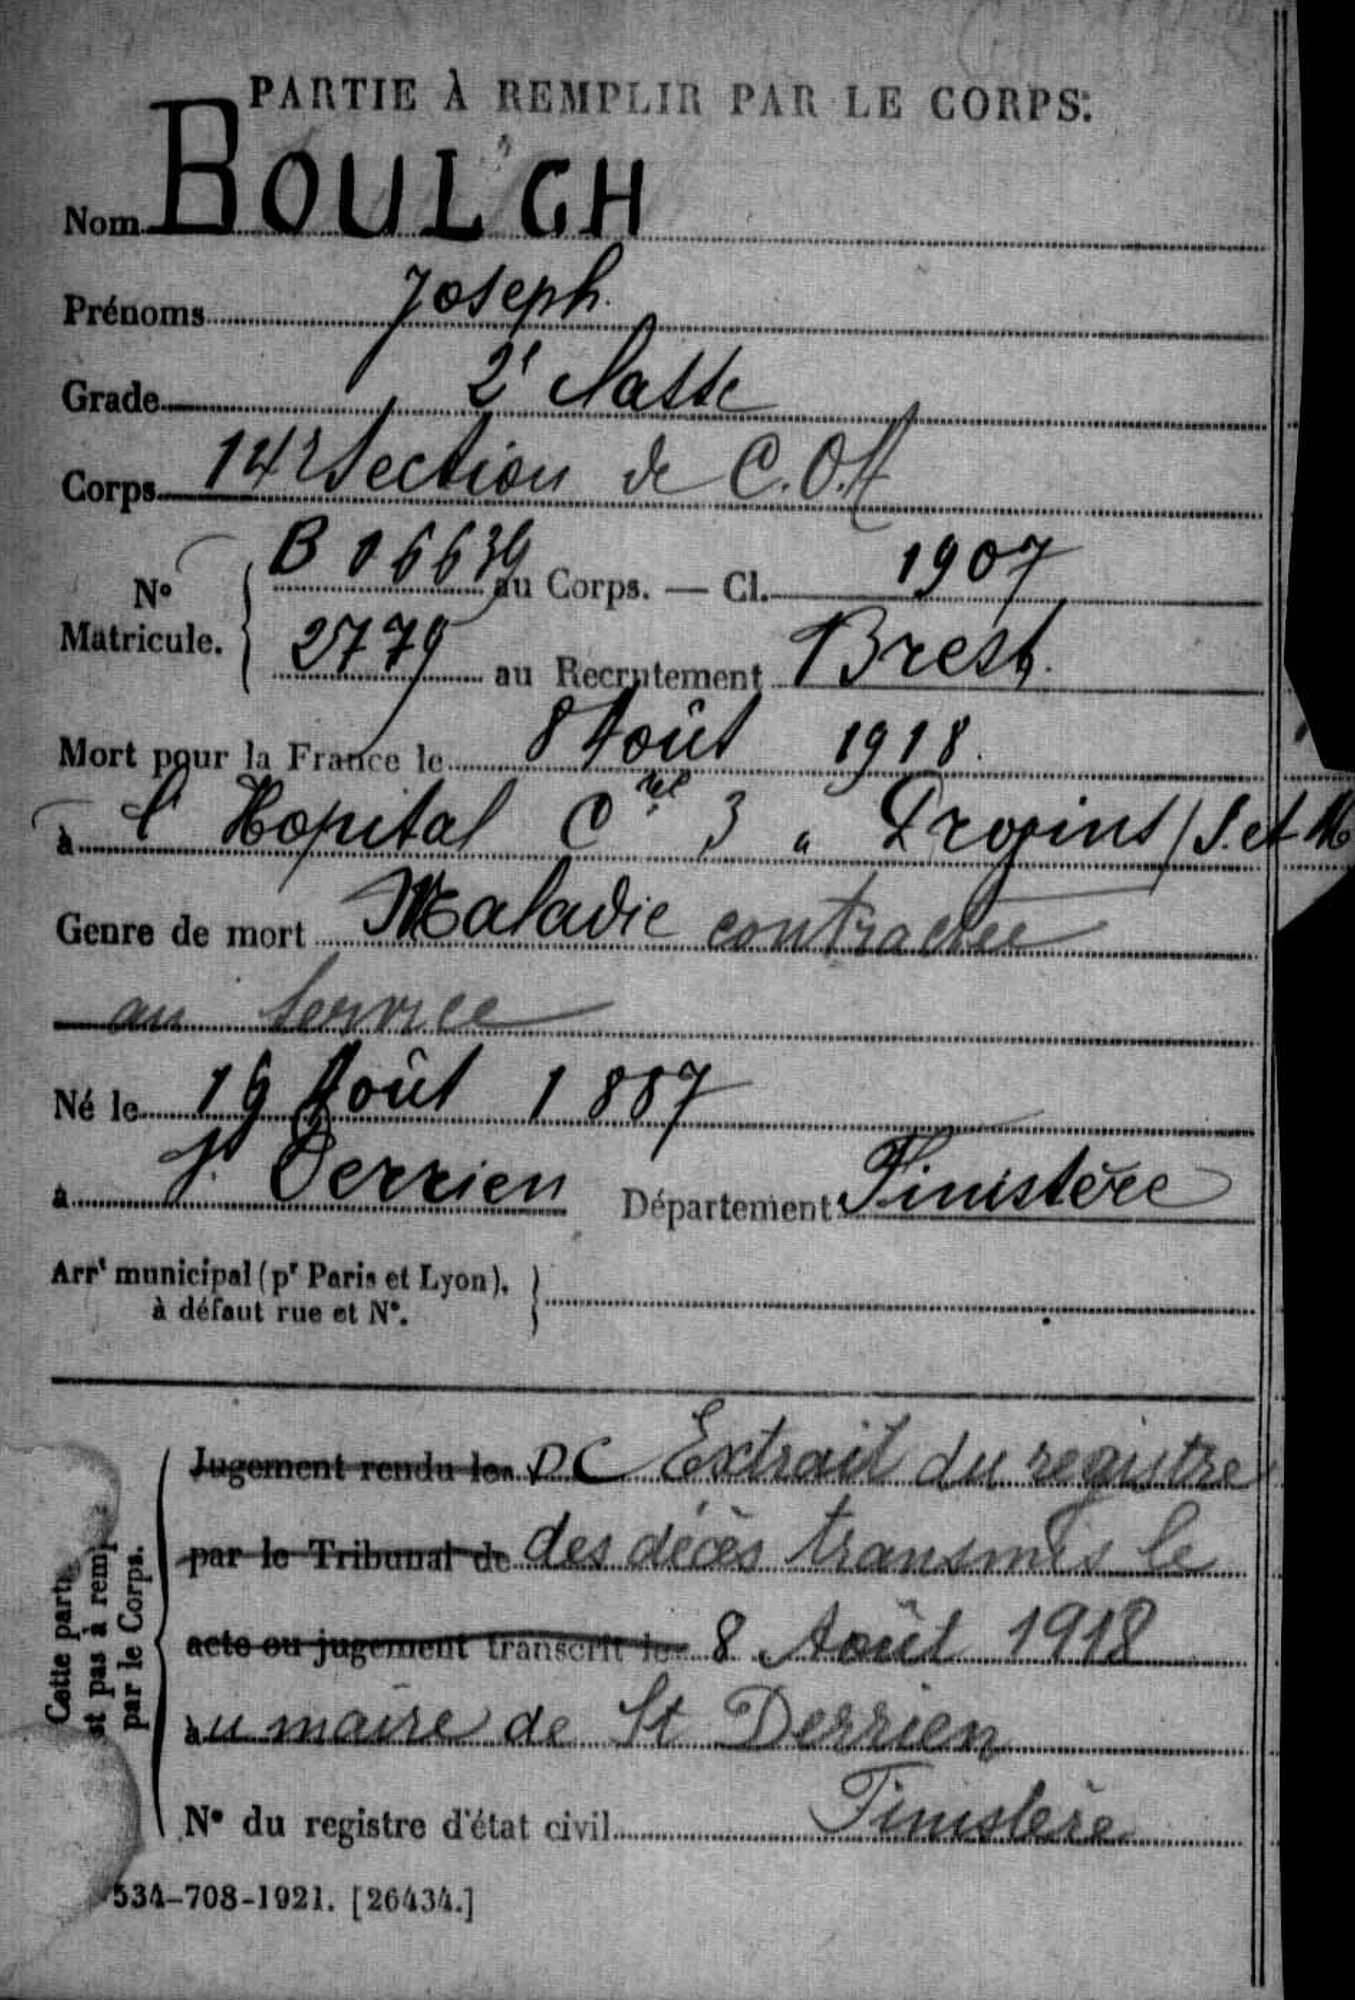 PARTIE À REMPLIR PAR LE CORPS.
Nom BOULCH
Prénoms Joseph
Grade 2e Classe
Corps 14e Section de C.O.A
No Matricule. B 06639 au Corps. — Cl. 1907
2779 au Recrutement Brest.
Mort pour la France le 8 Août 1918.
à l'Hopital Crel 3 " Provins (S. et M
Genre de mort Maladie contractée
au service
Né le 19 Août 1887
à St Derrien Département Finistère
Arrt municipal (pr Paris et Lyon),
à défaut rue et No.
Jugement rendu le DC Extrait du registre
par le Tribunal de des décès transmis le
acte ou jugement transcrit le 8 Août 1918
au maire de St Derrien
No du registre d'état civil Finistère
Cette partie
st pas à remp
par le Corps.
534-708-1921. [26434.]